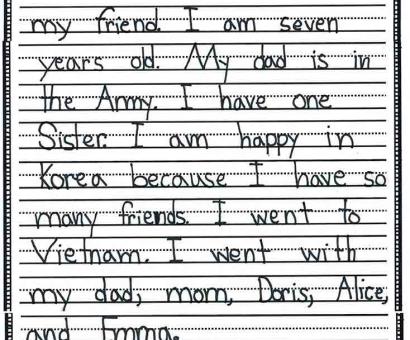 my friend. I am seven
years old. My dad is in
the Army. I have one
Sister. I am happy in
Korea because I have so
many friends. I went to
Vietnam. I went with
my dad, mom, Doris, Alice,
and Emma.